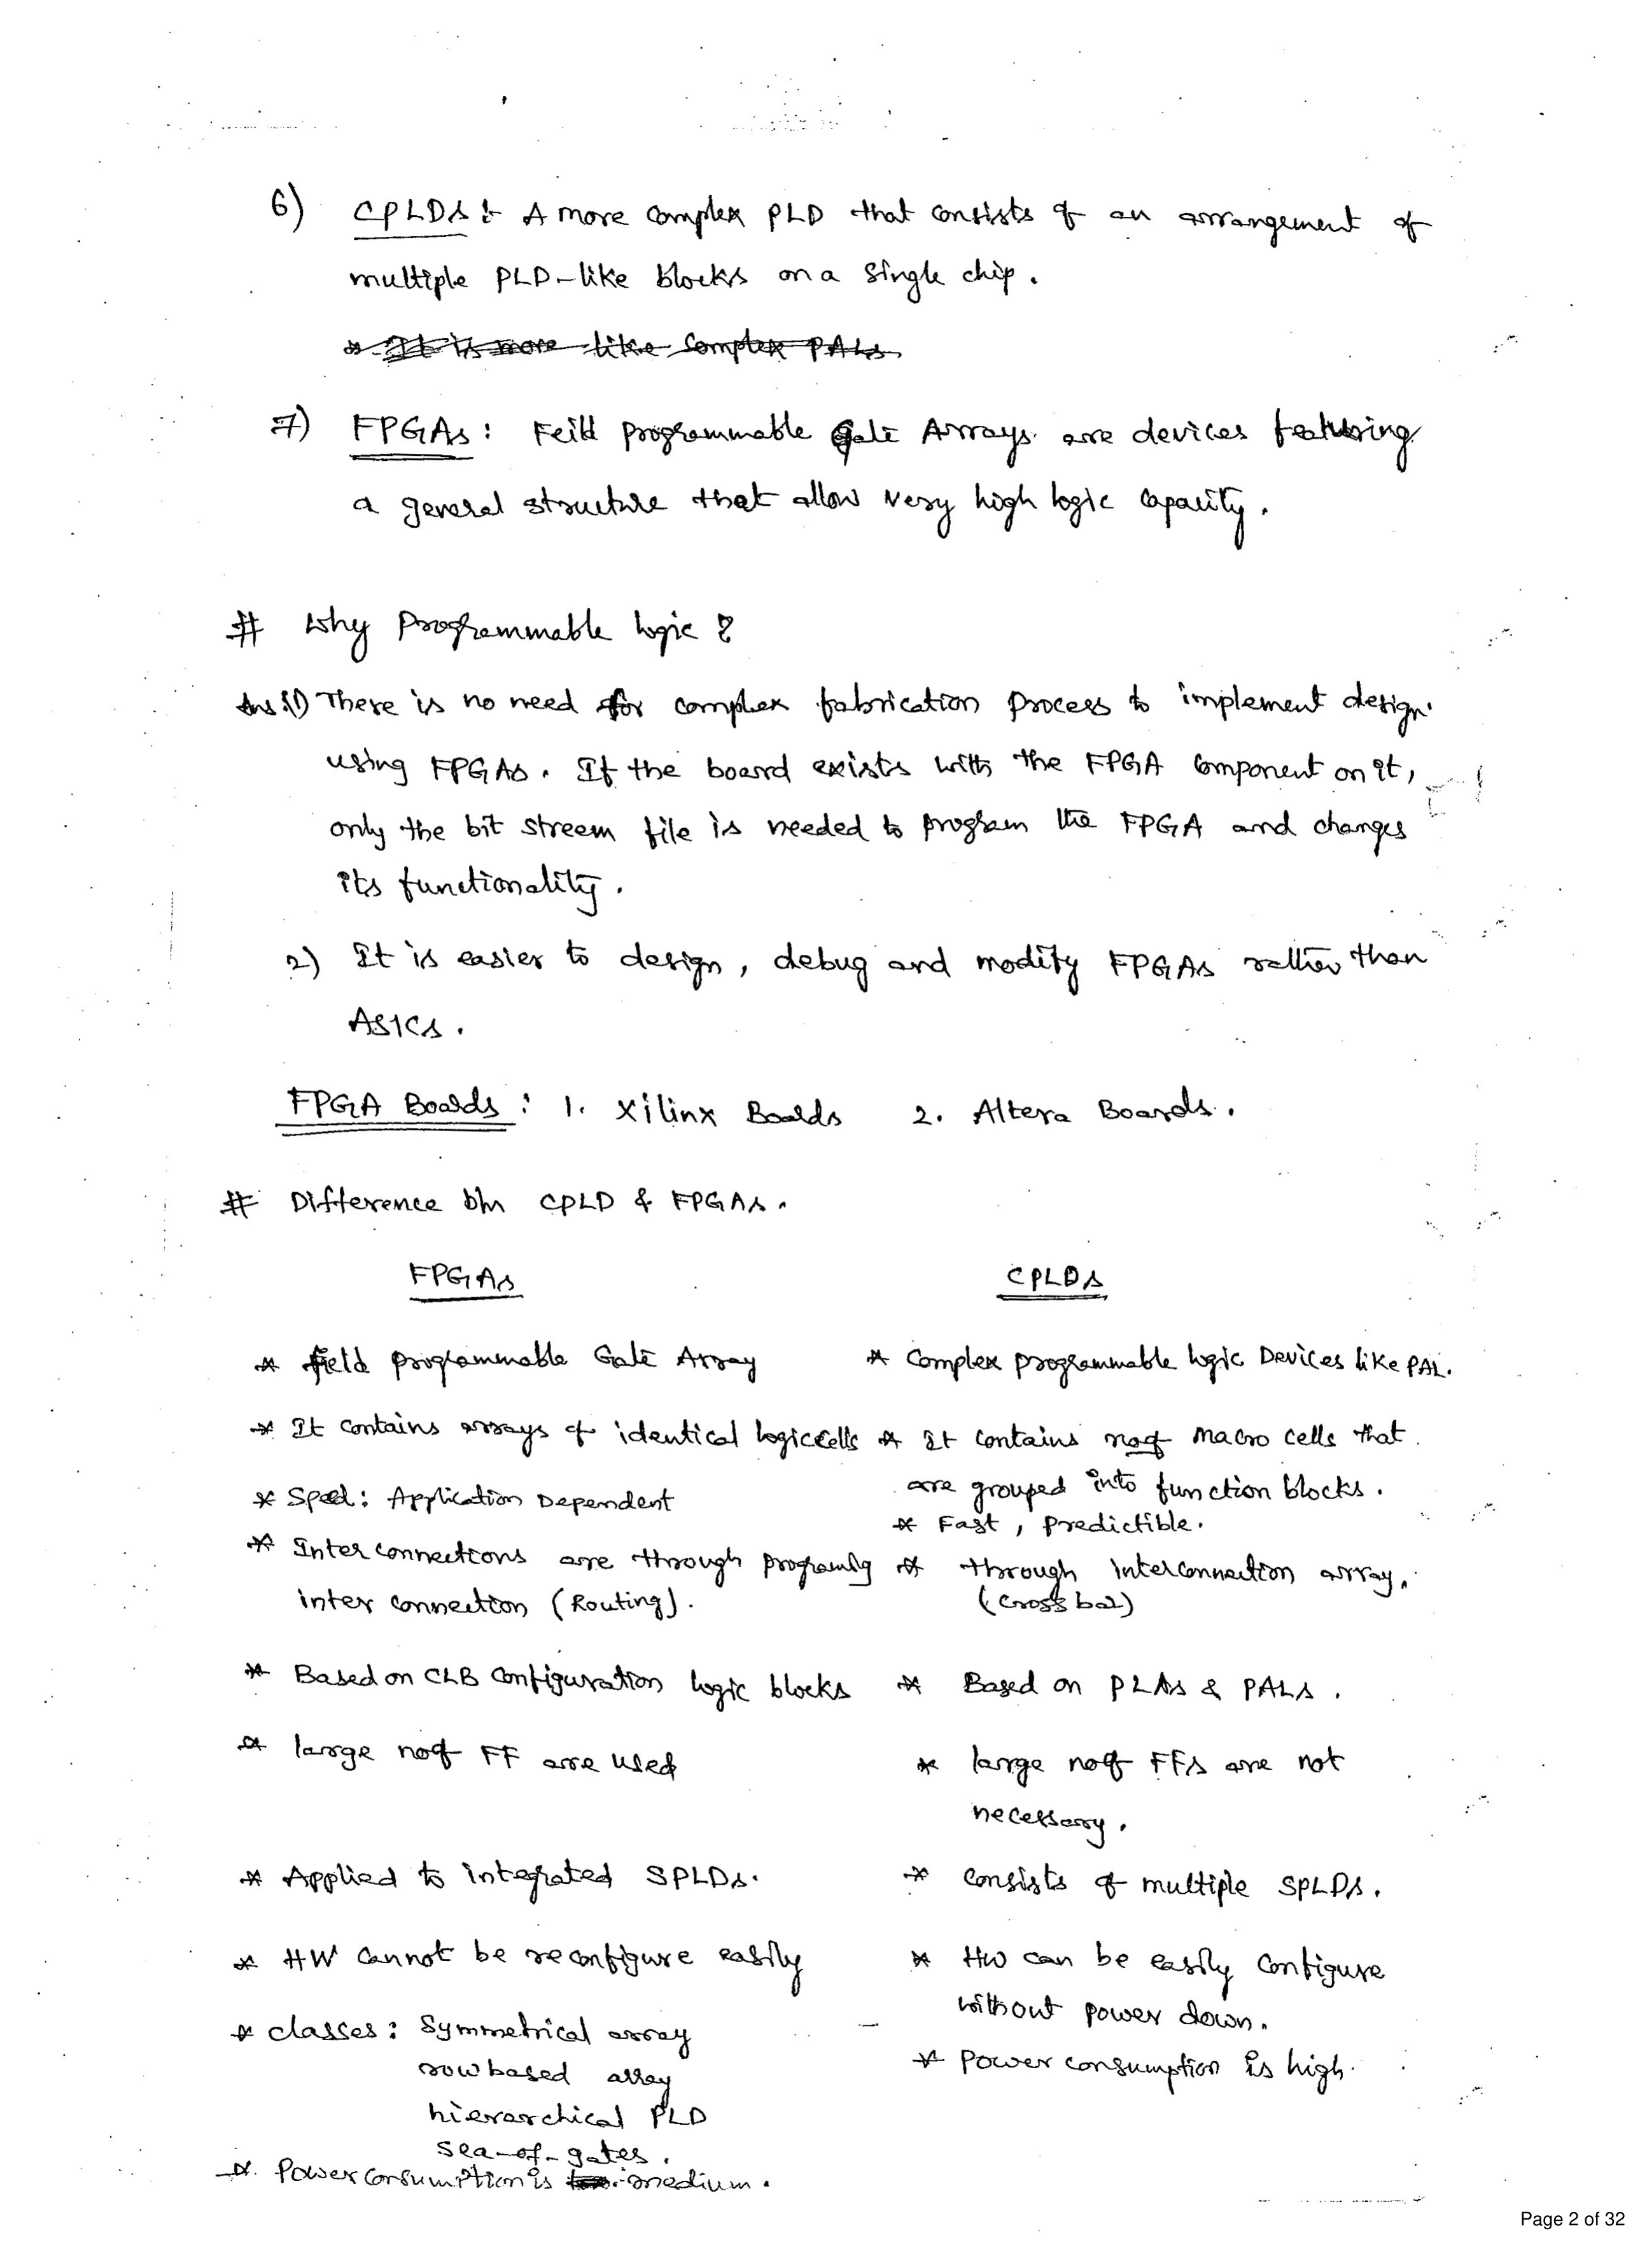 6) CPLDs :- A more complex PLD that consists of an arrangement of
multiple PLD-like blocks on a single chip.
* It is more like Complex PALs
7) FPGAs : Feild programmable Gate Arrays are devices featuring
a general structure that allow very high logic capacity.
# Why Programmable logic ?
Ans :1) There is no need for complex fabrication process to implement design
using FPGAs. If the board exists with the FPGA component on it,
only the bit streem file is needed to program the FPGA and changes
its functionality.
2) It is easier to design, debug and modify FPGAs rather than
ASICs.
FPGA Boards : 1. Xilinx Boards 2. Altera Boards.
# Difference b/n CPLD & FPGAs.
FPGAs CPLDs
* Field programmable Gate Array * Complex programmable logic Devices like PAL.
* It contains arrays of identical logic cells * It contains no of macro cells that
are grouped into function blocks.
* Speed : Application Dependent
* Fast, predictible.
* Inter connections are through programig * through interconnection array.
inter connection (Routing). (cross bar)
* Based on CLB configuration logic blocks * Based on PLAs & PALs.
* large no of FF are used * large no of FFs are not
necessary.
* Applied to integrated SPLDs. * consists of multiple SPLDs.
* HW cannot be reconfigure easily * HW can be easily configure
without power down.
* classes : Symmetrical array
row based array
* Power consumption is high.
hierarchical PLD
sea-of-gates.
* Power consumption is medium.
Page 2 of 32